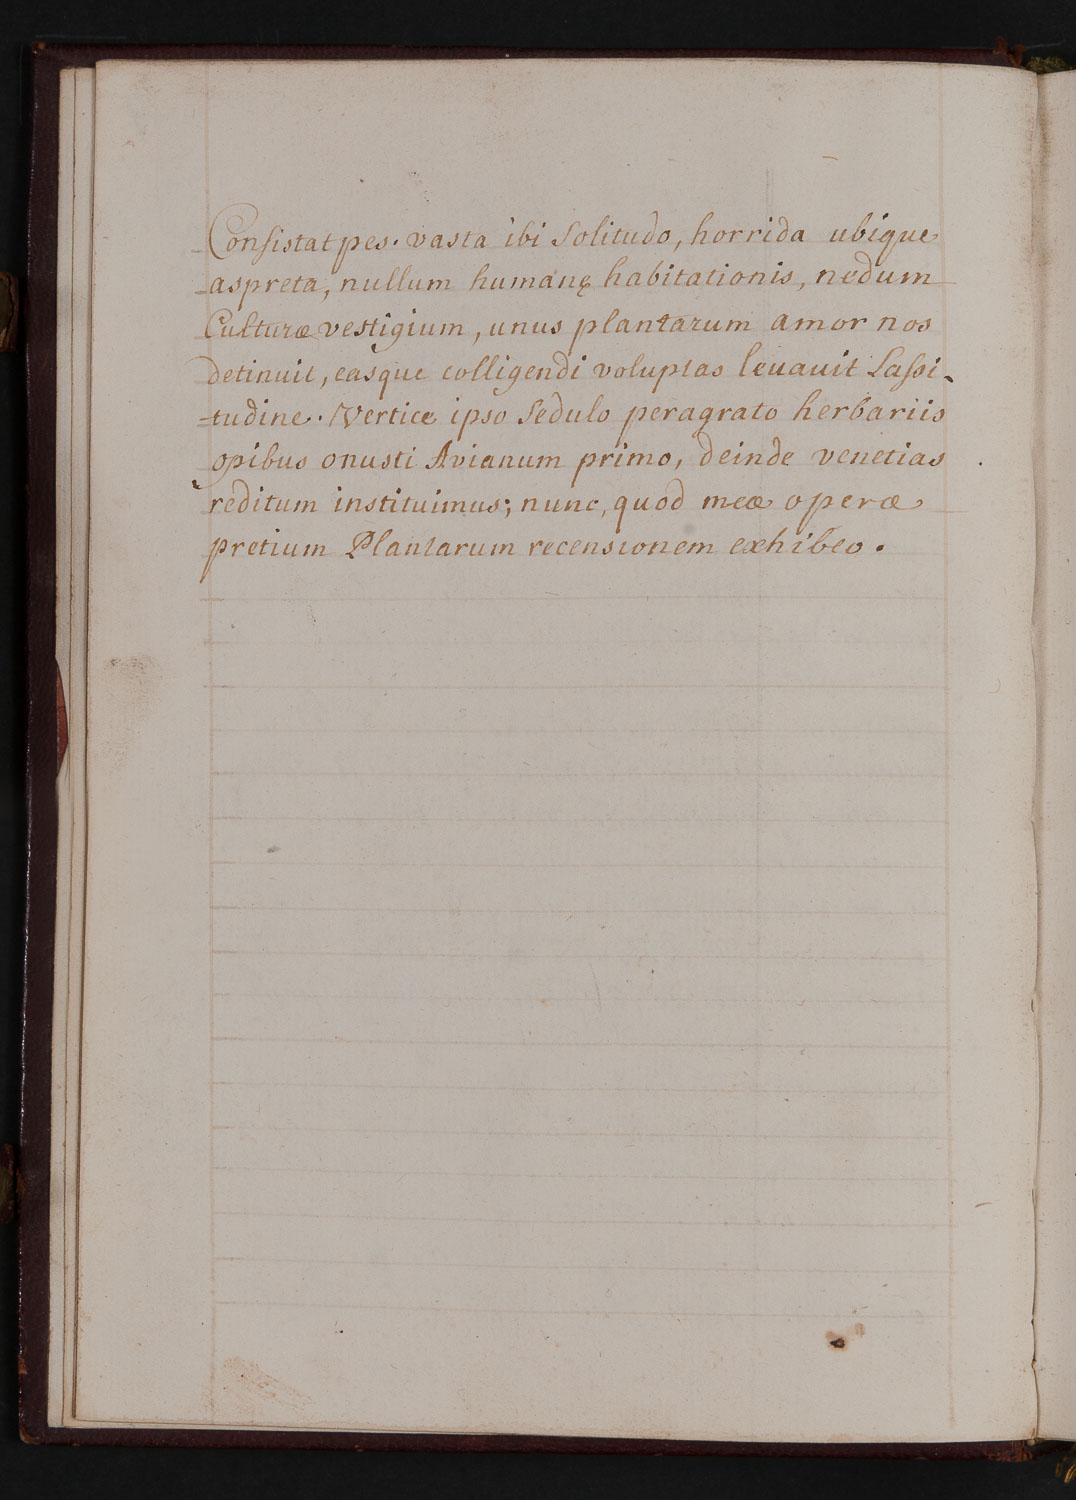 Consistat pes. vasta ibi Solitudo, horrida ubique
aspreta, nullum humanę habitationis, nedum
Culturæ vestigium, unus plantarum amor nos
detinuit, easque colligendi voluptas leuauit Lassi-
-tudine. Vertice ipso Sedulo peragrato herbariis
opibus onusti Avianum primo, deinde venetias
reditum instituimus; nunc, quod meæ operæ
pretium Plantarum recensionem exhibeo.